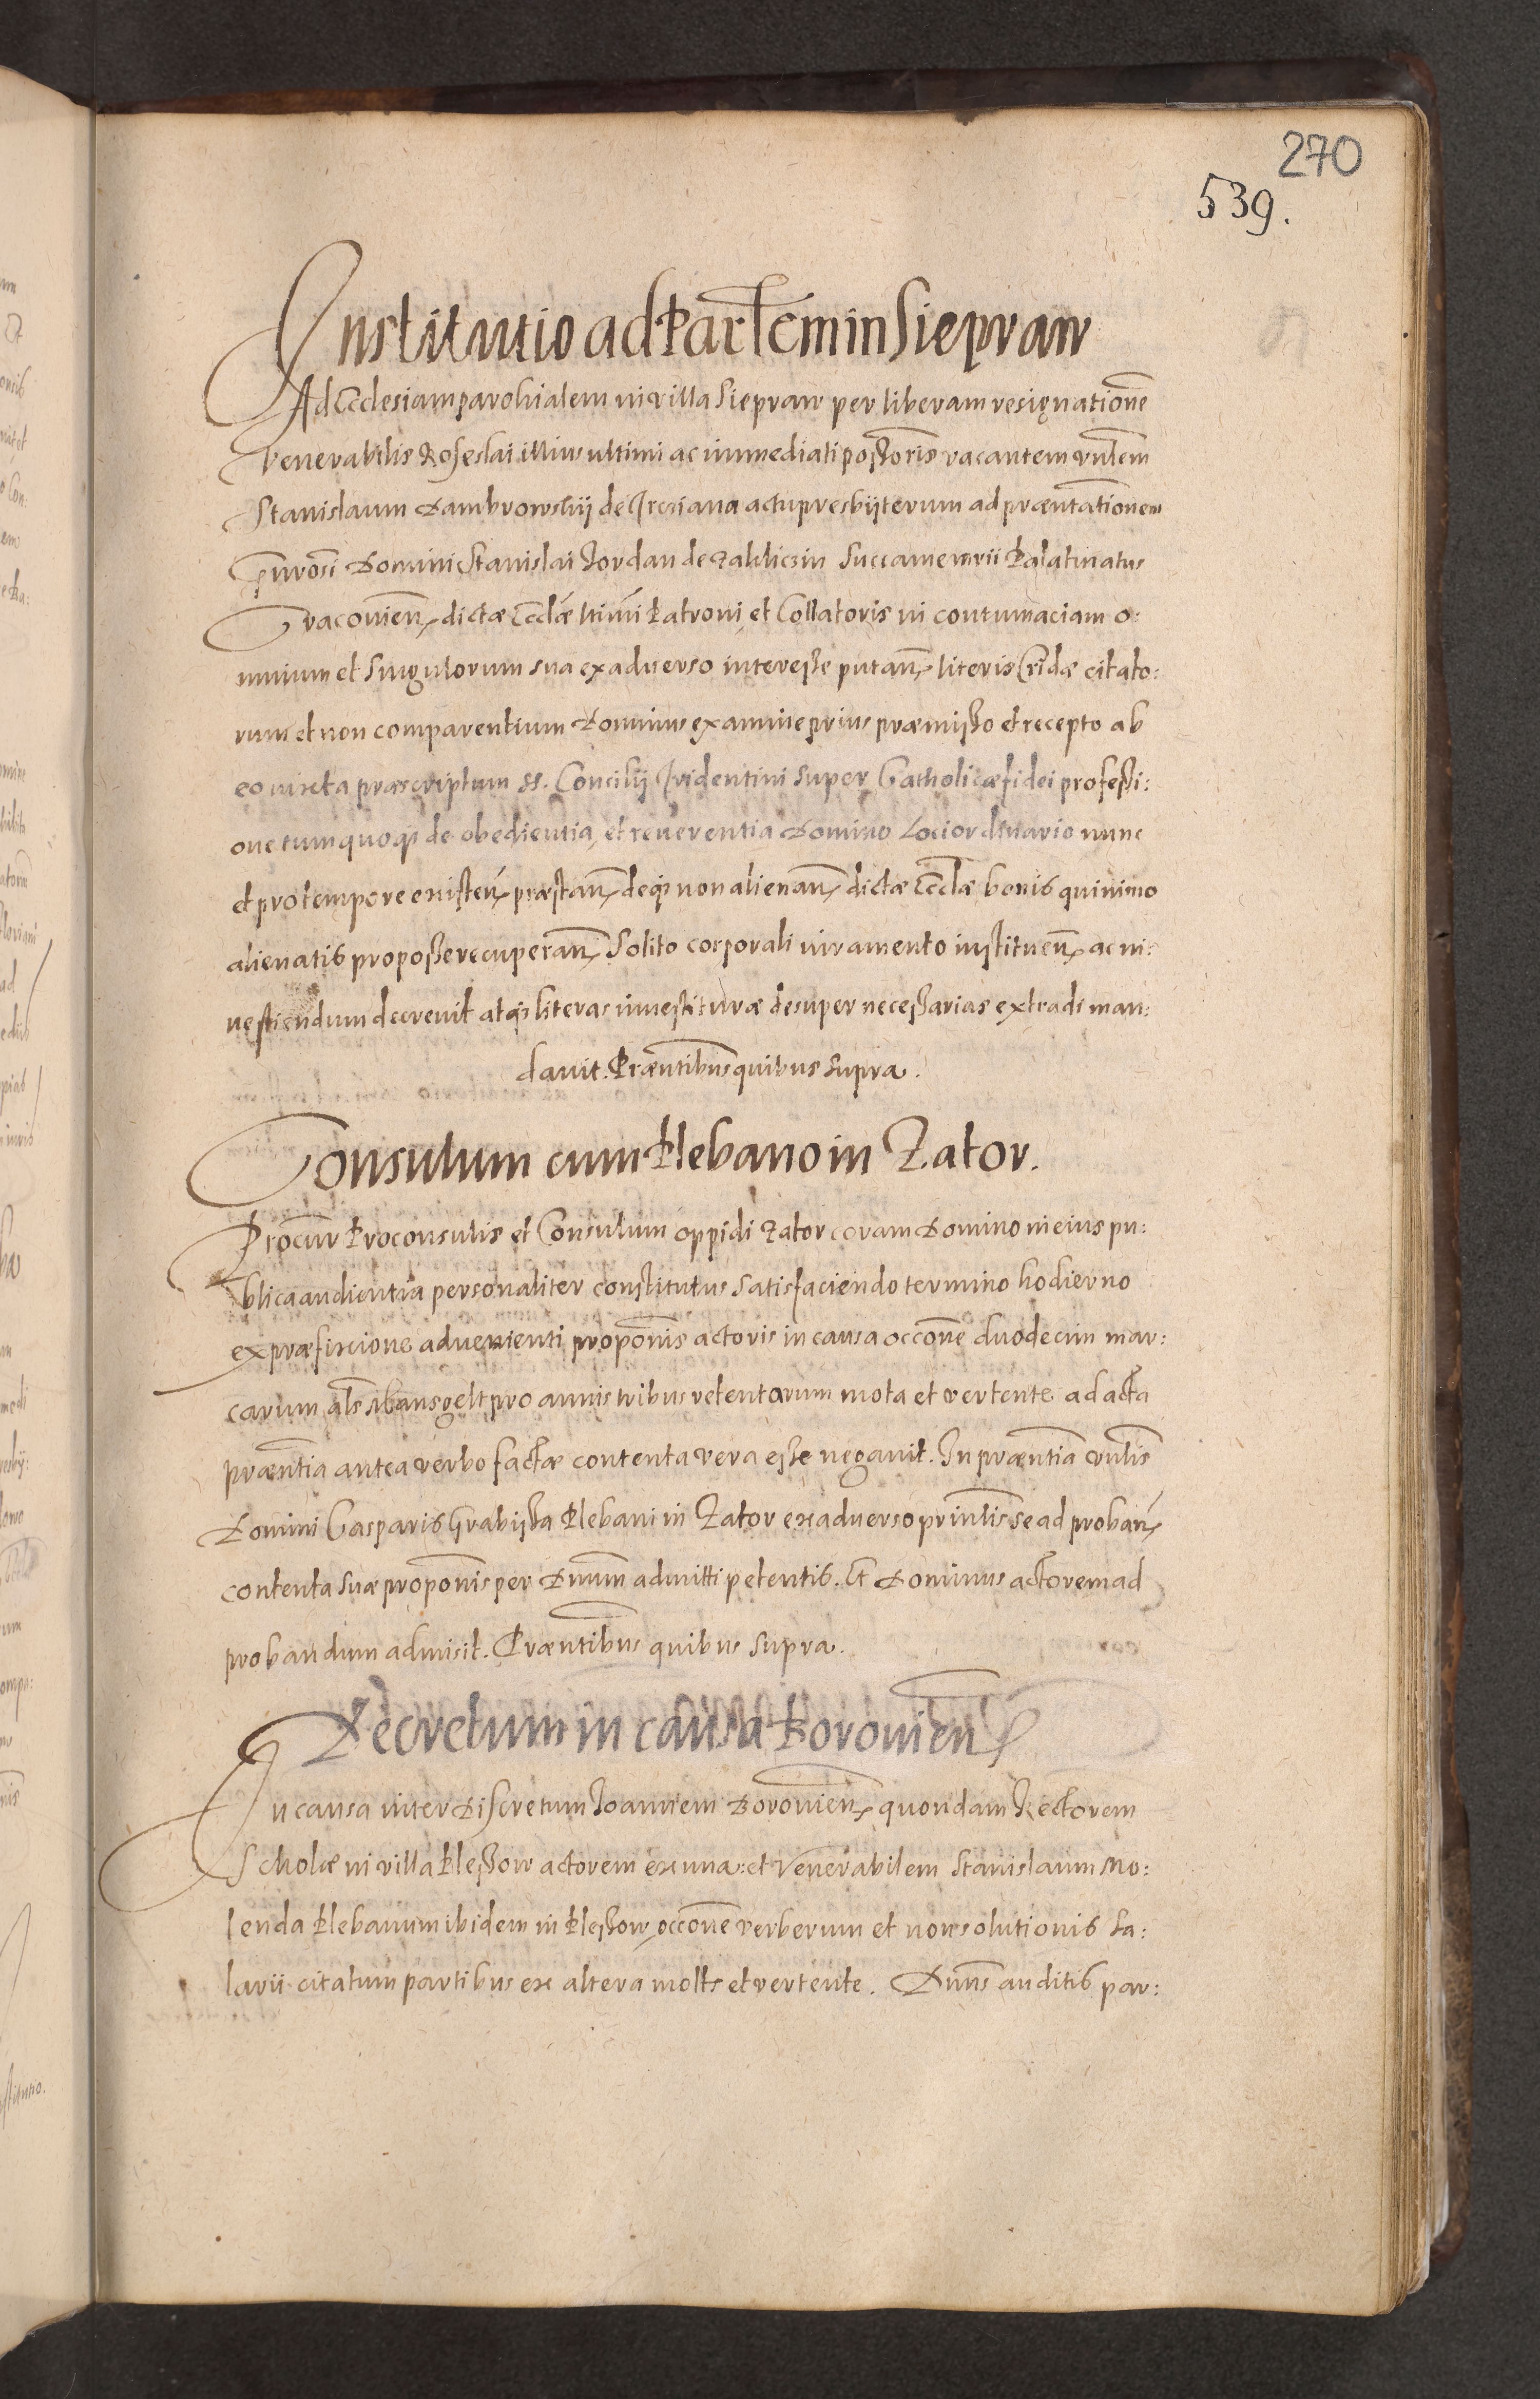 270
539.
Institutio ad Parłem in Siepraw
Ad Ecclesiam parohialem in villa Siepraw per liberam resignationē
Venerabilis illius ultimi ac immediati poßoris vacantem vnlem
Stanislaum Dambrowskÿ de actu presbÿterum ad praentationem
Gnrosi Domini Stanislai Jordan de Zakliczin Succamerarii Palatinatus
Cracovien dictae Eccłae Ltimi Patroni et Collatoris in contumaciam o:
mnium et Singulorum sua ex adverso intereße putan literis Cridae citato:
rum et non comparentium Dominus examine prius praemißo et recepto ab
eo iuxta praescriptum SS. Concilÿ Tridentini super Catholicae fidei profeßi:
one tum quoq de obedientia et reverentia Domino Lociordinario nunc
et pro tempore existen praestan deq non alienan dictae Eccłae bonis quinimo
alienatis pro poße recuperan Solito corporali iuramento instituen ac in:
vestiendum decrevit atq literas investiturae desuper neceßarias extradi man:
davit. Praentibus quibus supra.
Consulum cum Plebano in Zator.
Procur Proconsulis et Consulum oppidi Zator coram Domino in eius pu:
blica audientia personaliter constitutus satisfaciendo termino hodierno
ex praefixione advenienti proponis actoris in causa occone duodecim mar:
carum als pro annis tribus retentarum mota et vertente ad acta
praentia antea verbo factae contenta vera eße negavit. In praentia vnlis
Domini Gasparis Grabÿßa Plebani in Zator ex adverso prinlis se ad proban
contenta suae proponis per Dnum admitti petentis. Et Dominus actorem ad
probandum admisit. Praentibus quibus supra.
Decretum in causa Borovien
In causa inter Discretum Joannem Borovien quondam Rectorem
Scholae in villa Pleßow actorem ex una: et Venerabilem Stanislaum Mo:
lenda Plebanum ibidem in Pleßow occone verberum et non solutionis sa:
larii citatum partibus ex altera mota et vertente. Dnus auditis par: